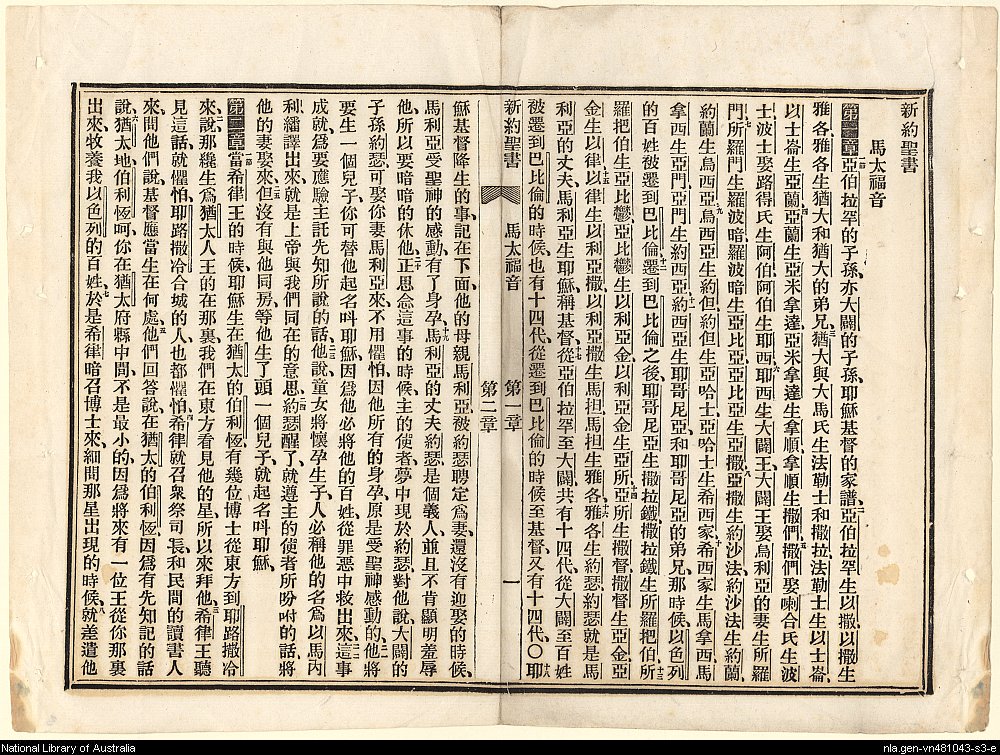 新約聖書
馬太福音
第一章亞伯拉罕的子孫、亦大闢的子孫、耶穌基督的家譜、亞伯拉罕生以撒、以撒生
雅各、雅各生猶大和猶大的弟兄、猶大與大馬氏生法勒士和撒拉、法勒士生以士崙、
以士崙生亞蘭、亞蘭生亞米拿達、亞米拿達生拿順、拿順生撒們、撒們娶喇合氏生波
士、波士娶路得氏生阿伯、阿伯生耶西、耶西生大闢王、大闢王娶烏利亞的妻生所羅
門、所羅門生羅波暗、羅波暗生亞比亞、亞比亞生亞撒、亞撒生約沙法、約沙法生約蘭、
約蘭生烏西亞、烏西亞生約但、約但生亞哈士、亞哈士生希西家、希西家生馬拿西、馬
拿西生亞門、亞門生約西亞、約西亞生耶哥尼亞、和耶哥尼亞的弟兄、那時候以色列
的百姓被遷到巴比倫、遷到巴比倫之後、耶哥尼亞生撒拉鐵、撒拉鐵生所羅把伯、所
羅把伯生亞比鬱、亞比鬱生以利亞金、以利亞金生亞所、亞所生撒督、撒督生亞金、亞
金生以律、以律生以利亞撒、以利亞撒生馬担、馬担生雅各、雅各生約瑟、約瑟就是馬
利亞的丈夫、馬利亞生耶穌、稱基督、從亞伯拉罕至大闢、共有十四代、從大闢至百姓
被遷到巴比倫的時候、也有十四代、從遷到巴比倫的時候至基督、又有十四代、〇耶
新約聖書 馬太福音 第一章 一
第二章
穌基督降生的事、記在下面、他的母親馬利亞、被約瑟聘定爲妻、還沒有迎娶的時候、
馬利亞受聖神的感動、有了身孕、馬利亞的丈夫約瑟、是個義人、並且不肯顯明羞辱
他、所以要暗暗的休他、正思念這事的時候、主的使者、夢中現於約瑟、對他說、大闢的
子孫約瑟、可娶你妻馬利亞來、不用懼怕、因他所有的身孕、原是受聖神感動的、他將
要生一個兒子、你可替他起名呌耶穌、因爲他必將他的百姓、從罪惡中救出來、這事
成就、爲要應驗主託先知所說的話、他說、童女將懷孕生子、人必稱他的名爲以馬內
利、繙譯出來、就是上帝與我們同在的意思、約瑟醒了、就遵主的使者所吩咐的話、將
他的妻娶來、但沒有與他同房、等他生了頭一個兒子、就起名呌耶穌、
第二章當希律王的時候、耶穌生在猶太的伯利恆、有幾位博士從東方到耶路撒冷
來、說、那纔生爲猶太人王的在那裏、我們在東方看見他的星、所以來拜他、希律王聽
見這話、就懼怕、耶路撒冷合城的人、也都懼怕、希律就召衆祭司長、和民間的讀書人
來、問他們說、基督應當生在何處、他們回答說、在猶太的伯利恆、因爲有先知記的話
說、猶太地伯利恆呵、你在猶太府縣中間、不是最小的、因爲將來有一位王、從你那裏
出來、牧養我以色列的百姓、於是希律暗召博士來、細問那星出現的時候、就差遣他
National Library of Australia
nla.gen-vn481043-s3-e